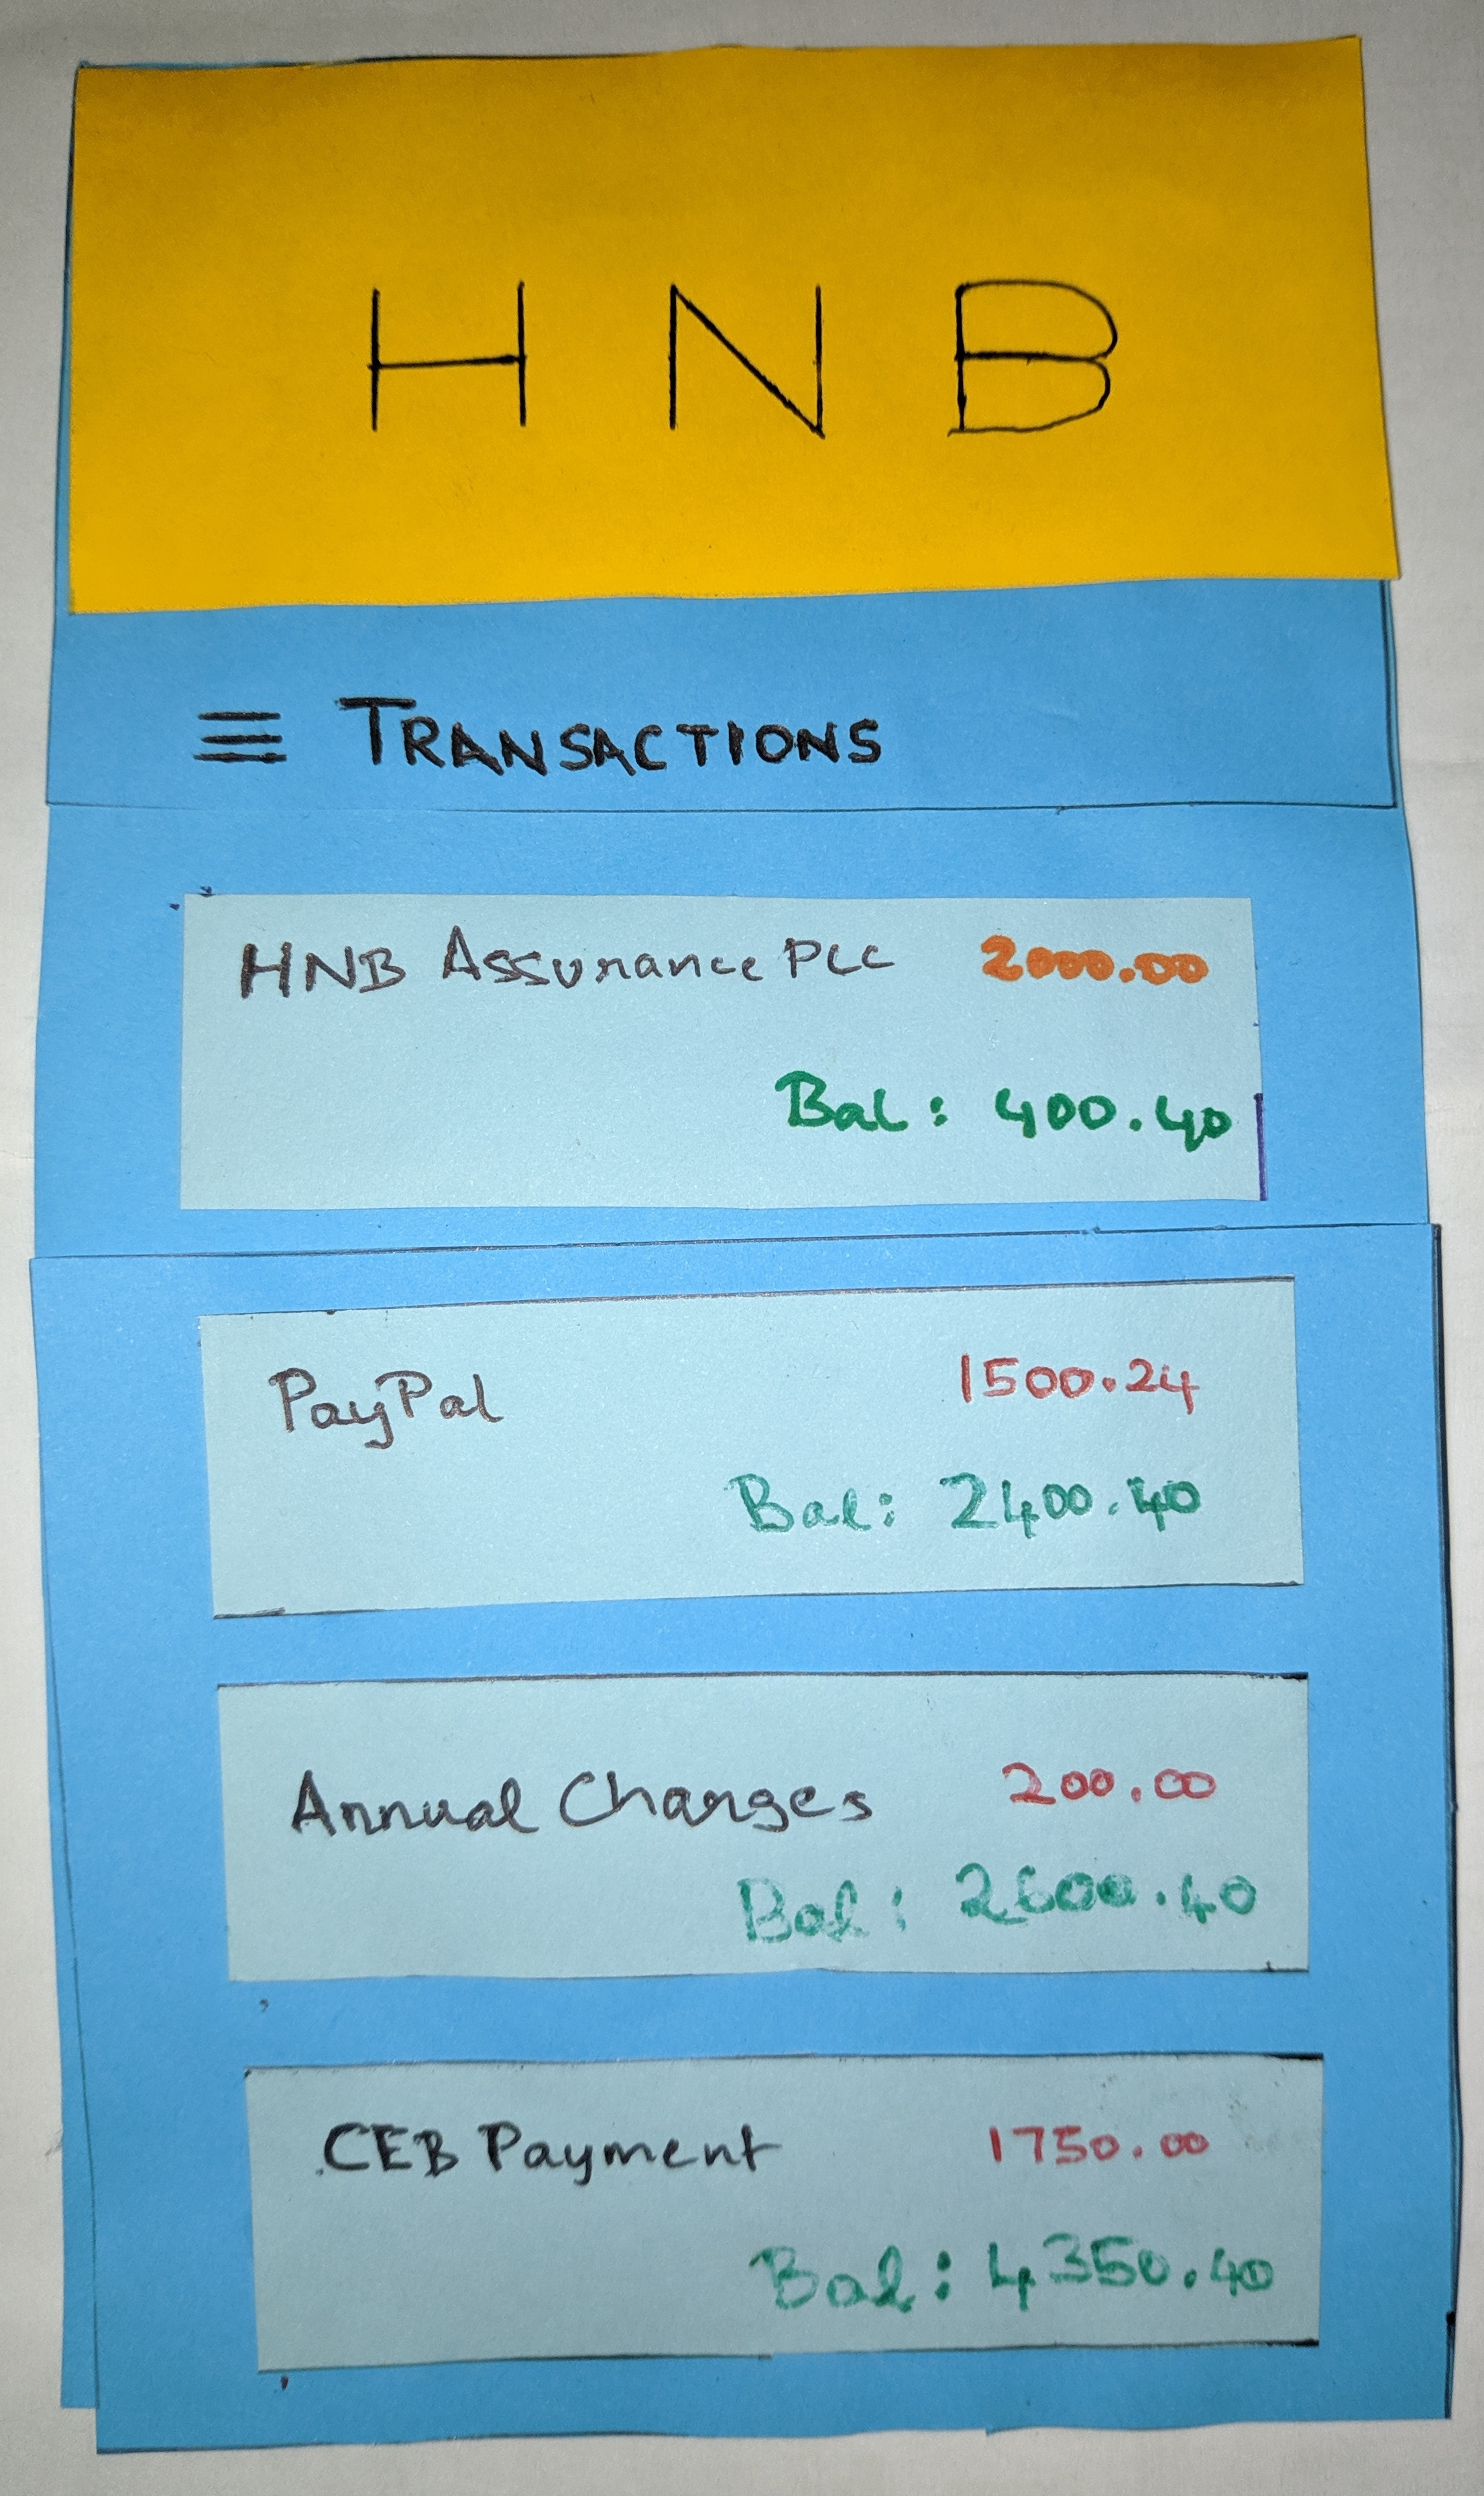 H N B
≡ TRANSACTIONS
HNB Assurance PLC 2000.00
Bal: 400.40
PayPal 1500.24
Bal: 2400.40
Annual Charges 200.00
Bal: 2600.40
CEB Payment 1750.00
Bal: 4350.40